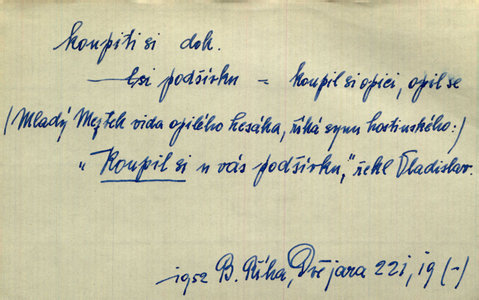 koupiti si dok.
— si podšívku = koupil si opici, opil se
(Mladý Mejtek vida opilého kesáka, říká synu hostinského:)
„Koupil si u vás podšívku," řekl Vladislav.
1952 B. Říha, Dvě jara 221, 19 (-)